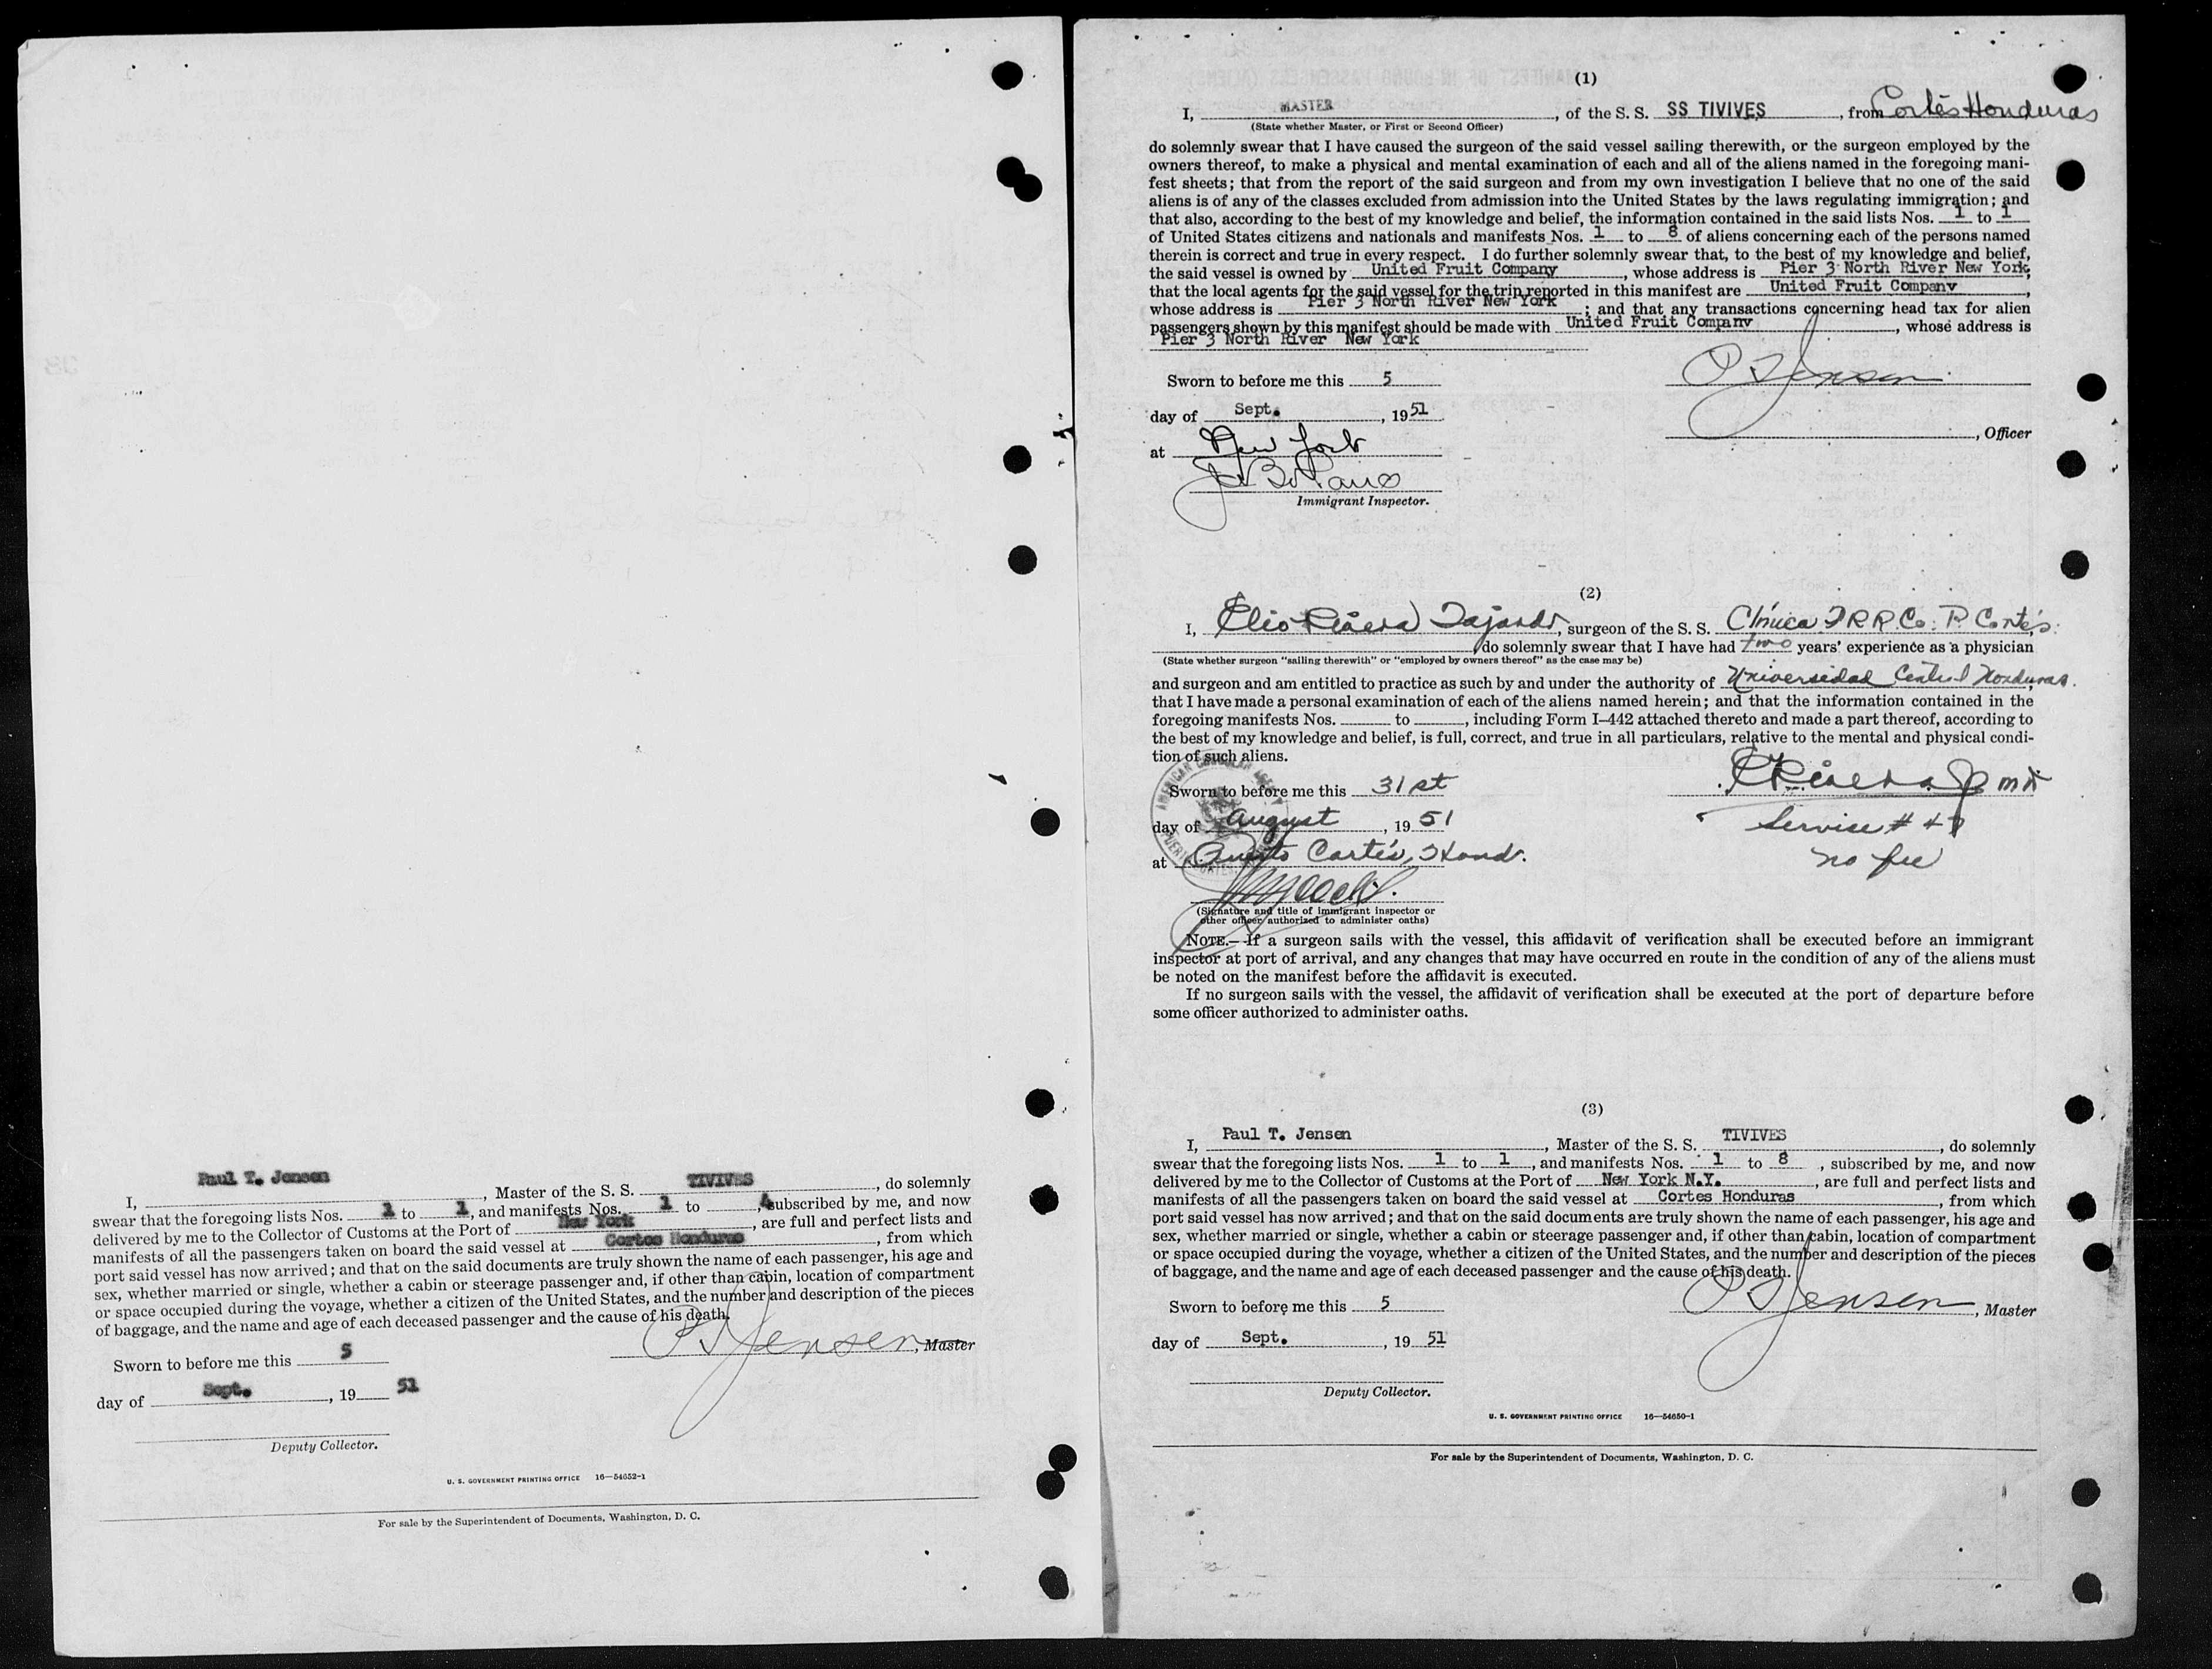 Paul T. Jensen TIVIVES
I, , Master of the S. S. , do solemnly
swear that the foregoing lists Nos. 1 to 1, and manifests Nos. 1 to 4, subscribed by me, and now
delivered by me to the Collector of Customs at the Port of New York, are full and perfect lists and
manifests of all the passengers taken on board the said vessel at Cortes Honduras, from which
port said vessel has now arrived; and that on the said documents are truly shown the name of each passenger, his age and
sex, whether married or single, whether a cabin or steerage passenger and, if other than cabin, location of compartment
or space occupied during the voyage, whether a citizen of the United States, and the number and description of the pieces
of baggage, and the name and age of each deceased passenger and the cause of his death.
P T Jensen, Master
Sworn to before me this 5
day of Sept., 19 51
Deputy Collector.
U. S. GOVERNMENT PRINTING OFFICE 16—54652-1
For sale by the Superintendent of Documents, Washington, D. C.
(1)
I, MASTER, of the S. S. SS TIVIVES, from Cortés Honduras
(State whether Master, or First or Second Officer)
do solemnly swear that I have caused the surgeon of the said vessel sailing therewith, or the surgeon employed by the
owners thereof, to make a physical and mental examination of each and all of the aliens named in the foregoing mani-
fest sheets; that from the report of the said surgeon and from my own investigation I believe that no one of the said
aliens is of any of the classes excluded from admission into the United States by the laws regulating immigration; and
that also, according to the best of my knowledge and belief, the information contained in the said lists Nos. 1 to 1
of United States citizens and nationals and manifests Nos. 1 to 8 of aliens concerning each of the persons named
therein is correct and true in every respect. I do further solemnly swear that, to the best of my knowledge and belief,
the said vessel is owned by United Fruit Company, whose address is Pier 3 North River New York;
that the local agents for the said vessel for the trip reported in this manifest are United Fruit Company,
whose address is Pier 3 North River New York; and that any transactions concerning head tax for alien
passengers shown by this manifest should be made with United Fruit Company, whose address is
Pier 3 North River New York
Sworn to before me this 5
P T Jensen
day of Sept., 19 51
, Officer
at New York
Immigrant Inspector.
(2)
I, Elio Rivera, surgeon of the S. S. Clínica T.R.R.Co. P. Cortés.
, do solemnly swear that I have had two years' experience as a physician
(State whether surgeon "sailing therewith" or "employed by owners thereof" as the case may be)
and surgeon and am entitled to practice as such by and under the authority of Universidad Central Honduras.
that I have made a personal examination of each of the aliens named herein; and that the information contained in the
foregoing manifests Nos. to , including Form I–442 attached thereto and made a part thereof, according to
the best of my knowledge and belief, is full, correct, and true in all particulars, relative to the mental and physical condi-
tion of such aliens.
Sworn to before me this 31st
day of August, 19 51
Service #
at Puerto Cortés, Hond.
no fee
(Signature and title of immigrant inspector or
other officer authorized to administer oaths)
NOTE.—If a surgeon sails with the vessel, this affidavit of verification shall be executed before an immigrant
inspector at port of arrival, and any changes that may have occurred en route in the condition of any of the aliens must
be noted on the manifest before the affidavit is executed.
If no surgeon sails with the vessel, the affidavit of verification shall be executed at the port of departure before
some officer authorized to administer oaths.
(3)
I, Paul T. Jensen, Master of the S. S. TIVIVES, do solemnly
swear that the foregoing lists Nos. 1 to 1, and manifests Nos. 1 to 8, subscribed by me, and now
delivered by me to the Collector of Customs at the Port of New York N.Y., are full and perfect lists and
manifests of all the passengers taken on board the said vessel at Cortes Honduras, from which
port said vessel has now arrived; and that on the said documents are truly shown the name of each passenger, his age and
sex, whether married or single, whether a cabin or steerage passenger and, if other than cabin, location of compartment
or space occupied during the voyage, whether a citizen of the United States, and the number and description of the pieces
of baggage, and the name and age of each deceased passenger and the cause of his death.
Sworn to before me this 5
P T Jensen, Master
day of Sept., 19 51
Deputy Collector.
U. S. GOVERNMENT PRINTING OFFICE 16—54650-1
For sale by the Superintendent of Documents, Washington, D. C.